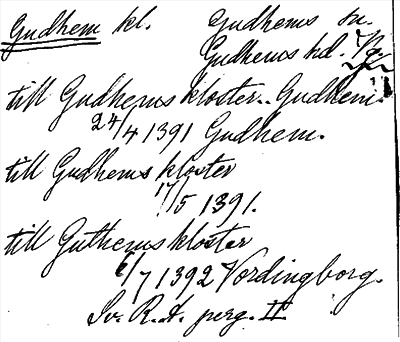 Gudhem kl. Gudhems sn.
Gudhems hd. Vg.
till Gudhems kloster. Gudhem.
24/4 1391 Gudhem.
till Gudhems kloster
17/5 1391.
till Guthems kloster
6/7 1392 Vordingborg.
Sv. R. A. perg. II